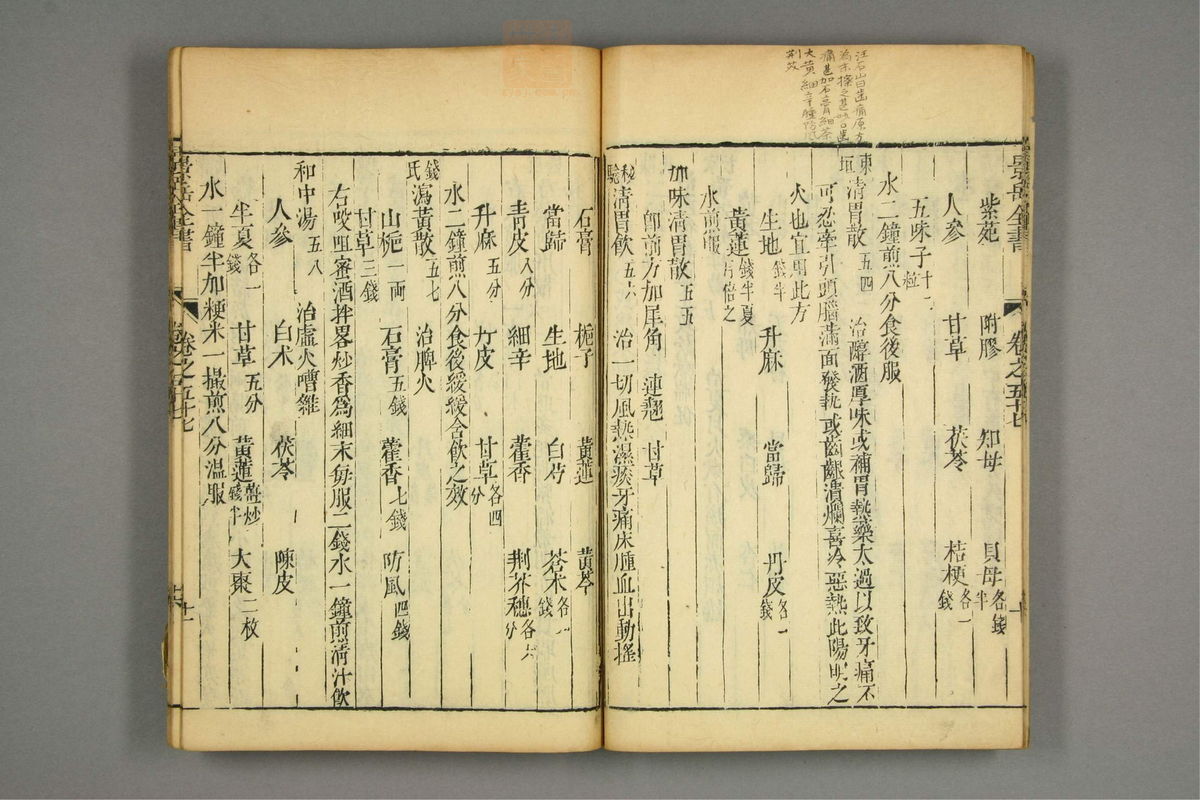 汪石山曰齒痛原方
為末擦之甚
痛甚加石膏細茶
大黃細辛腫防風
荊芥
景岳全書
卷之五十七
紫菀 附膠 知母 貝母各錢半
人參 甘草 茯苓 桔梗各一錢
五味子十一粒
水二鍾煎八分食後服
東垣清胃散五四 治醇酒厚味或補胃熱藥太過以致牙痛不
可忍牽引頭腦滿面發熱或齒齦潰爛喜冷惡熱此陽明之
火也宜用此方
生地錢半 升麻 當歸 丹皮各一錢
黃蓮錢半夏月倍之
水煎服
加味清胃散五五
卽前方加犀角 連翹 甘草
秘驗清胃飲五六 治一切風熱濕痰牙痛床腫血出動搖
石膏 梔子 黃蓮 黃芩
當歸 生地 白芍 蒼朮各一錢
青皮八分 細辛 藿香 荊芥穗各六分
升麻五分 丹皮 甘草各四分
水二鍾煎八分食後緩緩含飲之效
錢氏瀉黃散五七 治脾火
山梔一両 石膏五錢 藿香七錢 防風四錢
甘草三錢
右㕮咀蜜酒拌畧炒香為細末每服二錢水一鐘煎清汁飲
和中湯五八 治虛火嘈雜
人參 白朮 茯苓 陳皮
半夏各一錢 甘草五分 黃蓮薑炒錢半 大棗二枚
水一鐘半加粳米一撮煎八分溫服
景岳全書
卷之五十七
十一